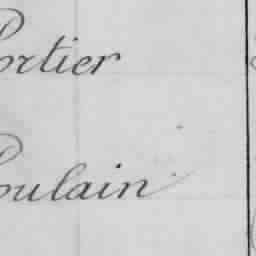 Portier
Poulain